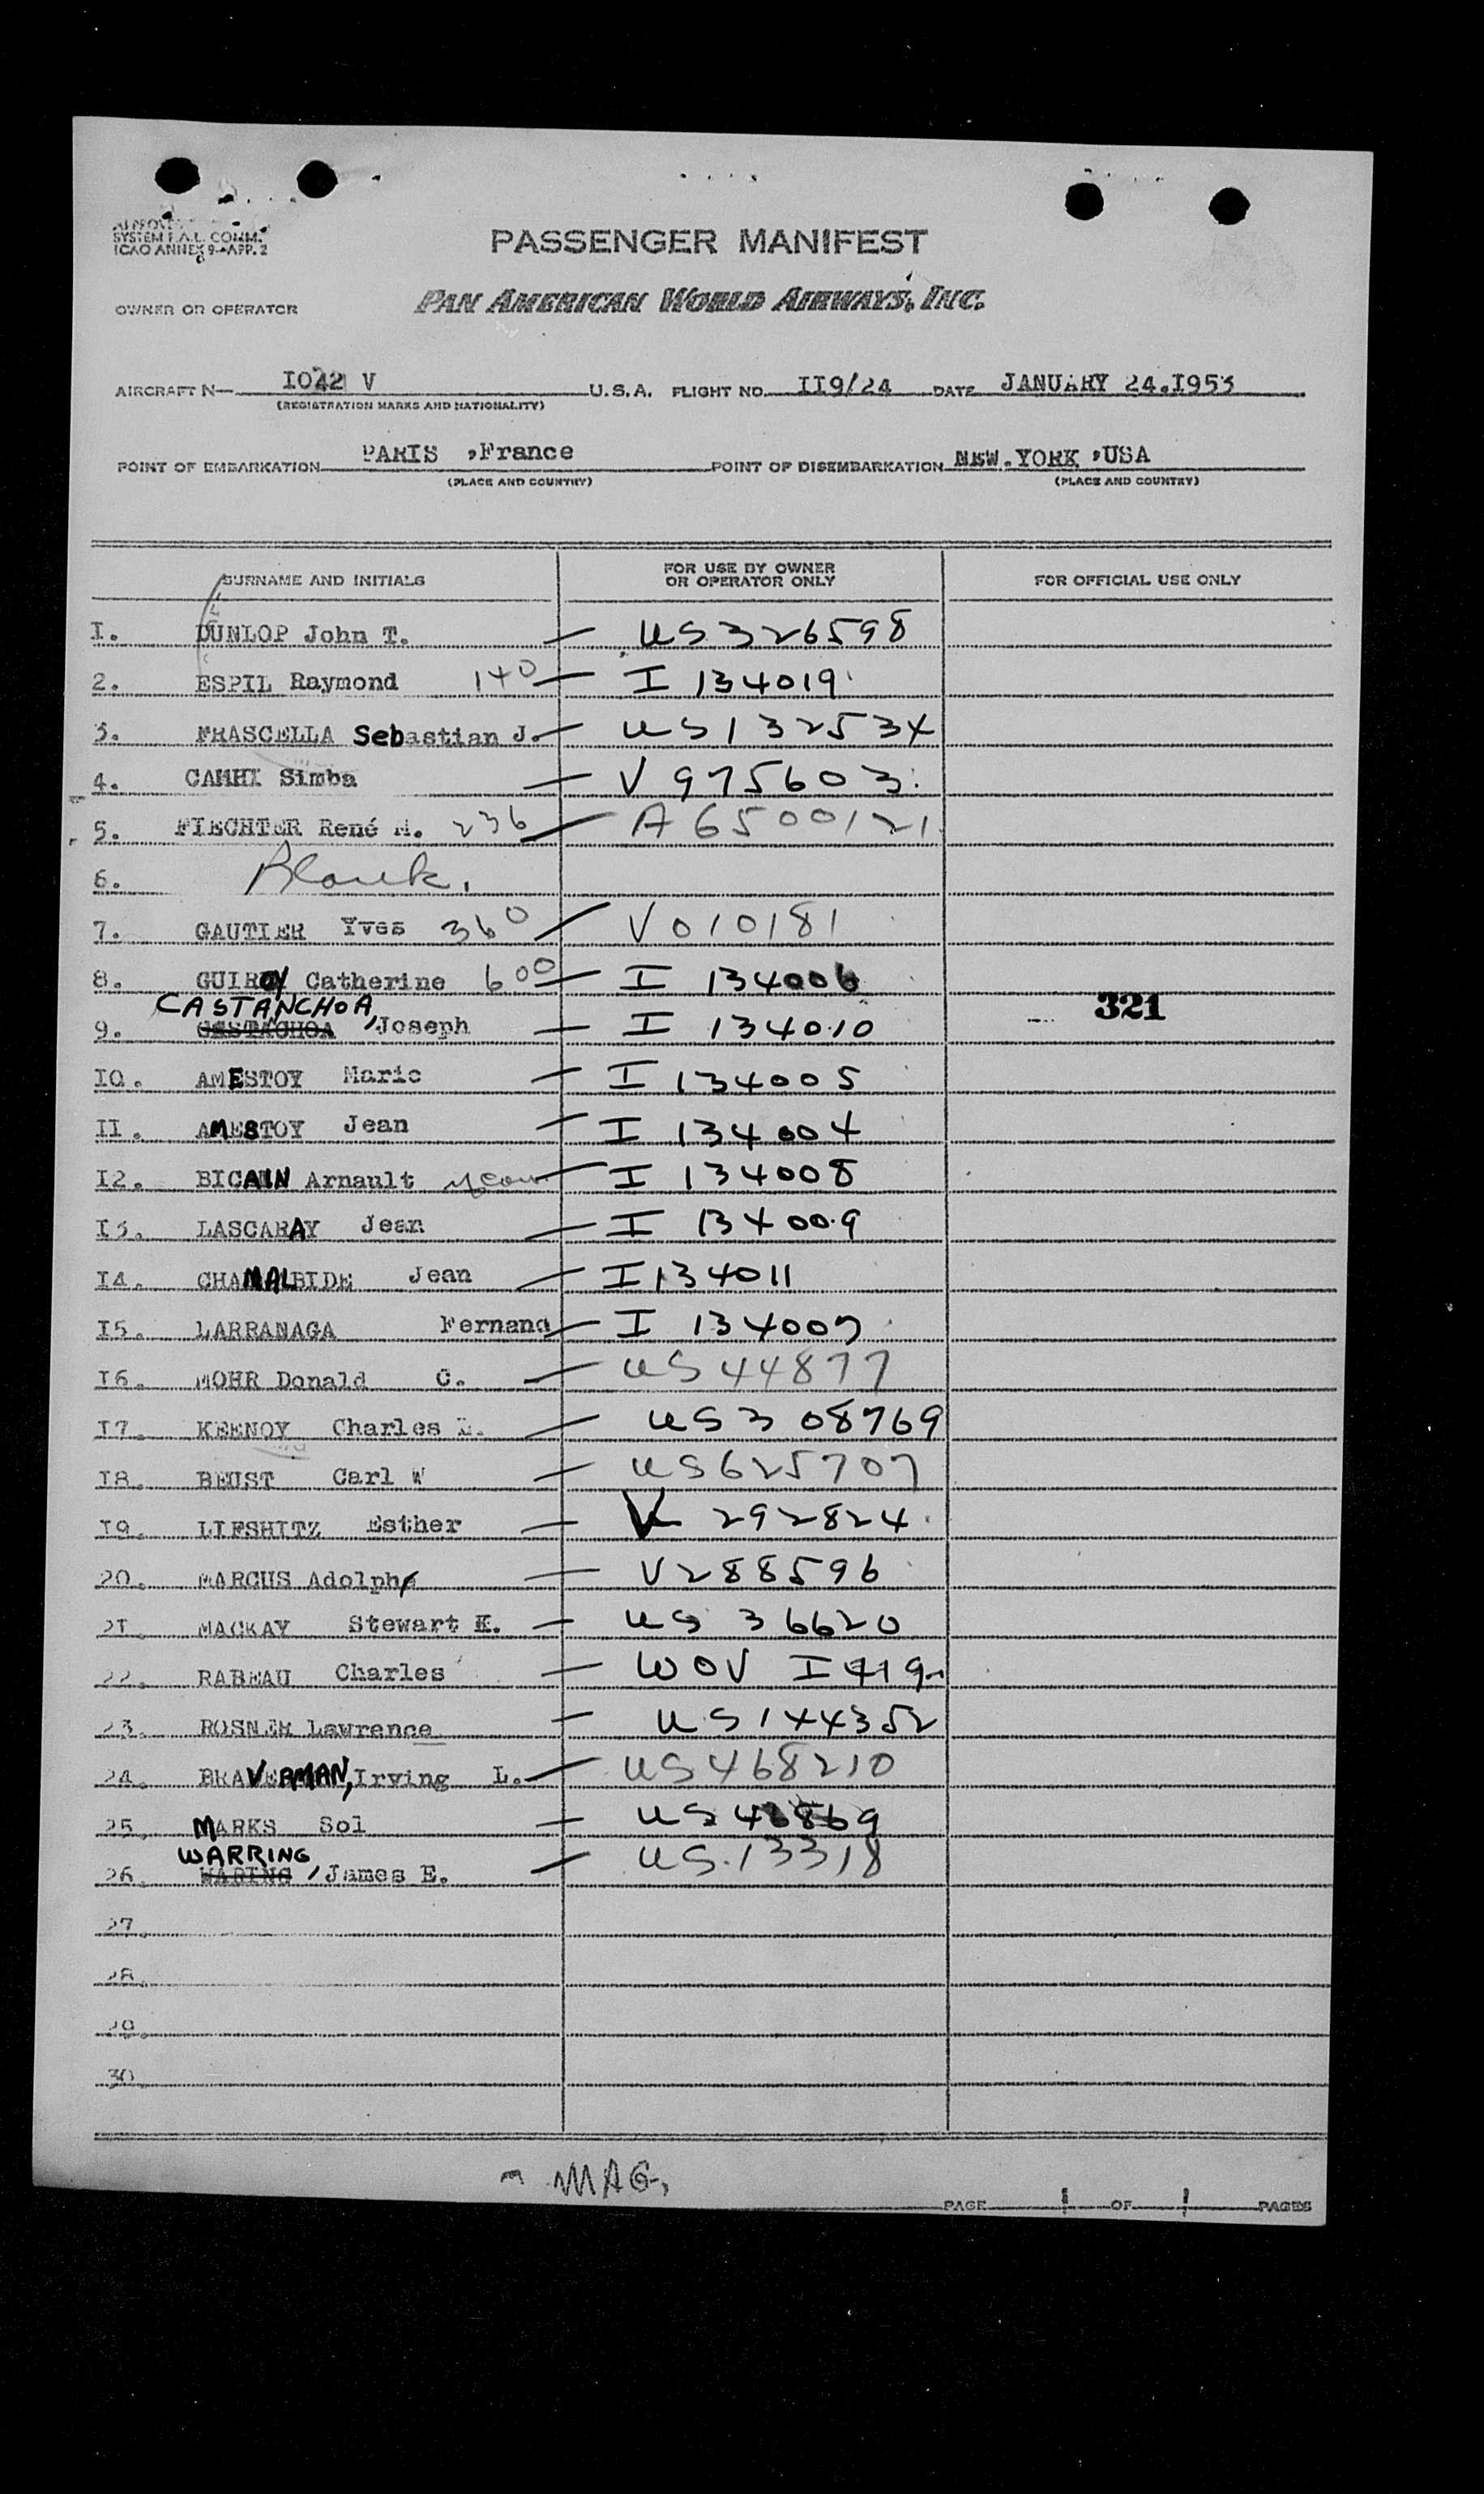 APPROVED
SYSTEM F.A.L. COMM.
ICAO ANNEX 9-APP. 2
PASSENGER MANIFEST
OWNER OR OPERATOR PAN AMERICAN WORLD AIRWAYS, INC.
AIRCRAFT N— I042 V U.S.A. FLIGHT NO. II9/24 DATE JANUARY 24.I953
(REGISTRATION MARKS AND NATIONALITY)
POINT OF EMBARKATION PARIS ,France POINT OF DISEMBARKATION NEW.YORK ,USA
(PLACE AND COUNTRY) (PLACE AND COUNTRY)
SURNAME AND INITIALS FOR USE BY OWNER OR OPERATOR ONLY FOR OFFICIAL USE ONLY
I. DUNLOP John T. — US 326598
2. ESPIL Raymond 140 — I 134019
3. FRASCELLA Sebastian J. — US 132534
4. CAMHI Simba — V 975603
5. FIECHTER René M. 236 — A6500121
6. Blank.
7. GAUTIER Yves 360 / V010181
8. GUIROY Catherine 600 — I 134006
CASTANCHOA
9. CESTACHOA, Joseph — I 134010 321
IO. AMESTOY Marie — I 134005
II. AMESTOY Jean — I 134004
I2. BICAIN Arnault — I 134008
I3. LASCARAY Jean — I 134009
I4. CHAMALBIDE Jean — I 134011
I5. LARRANAGA Fernand — I 134007
I6. MOHR Donald C. — US 44877
I7. KEENOY Charles E. — US 308769
I8. BEUST Carl W — US 625707
I9. LIFSHITZ Esther — V 292824
20. MARCUS Adolph — V288596
2I. MACKAY Stewart E. — US 36620
22. RABEAU Charles — WOV I 419
23. ROSNER Lawrence — US 144352
24. BRAVERMAN, Irving L. — US 468210
25. MARKS Sol — US 48869
WARRING
26. WARING, James E. — US 13318
27.
28.
29.
30.
MAG.
PAGE 1 OF 1 PAGES